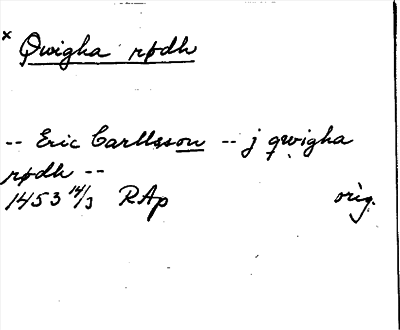 × Qwigha rødh
-- Eric Carllsson -- j qwigha
rødh --
1453 14/3 RAp orig.